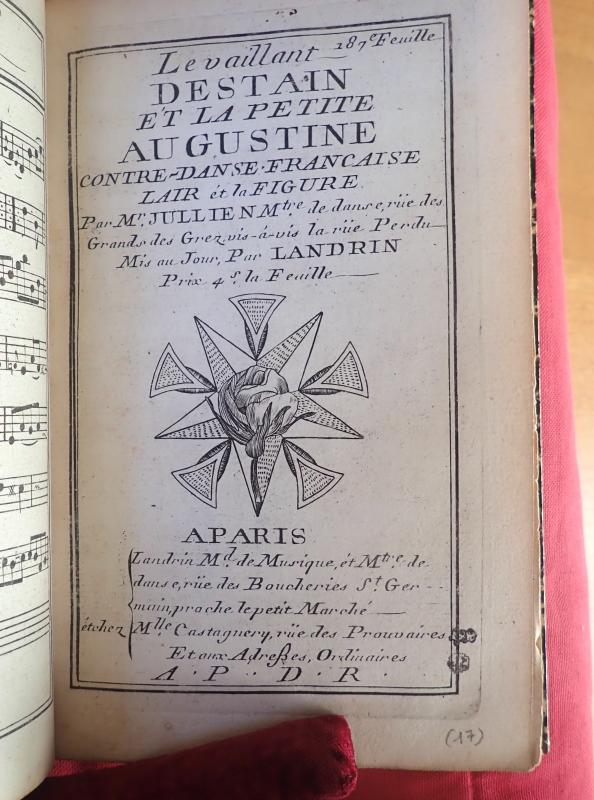 Le vaillant 187e Feuille
DESTAIN
ET LA PETITE
AUGUSTINE
CONTRE-DANSE-FRANCAISE
LAIR ét la FIGURE.
Par Mr. JULLIEN Mtre de danse, rüe des
Grands des Grez vis-á-vis la rüe Perdu
Mis au Jour, Par LANDRIN
Prix 4 s. la Feuille
APARIS
Landrin Md de Musique, ét Mtre de
danse, rüe des Boucheries St Ger-
main, proche le petit Marché
étchez Mlle Castagnery, rüe des Prouvaires
Et aux Adreſses, Ordinaires
A. P. D. R.
(17)